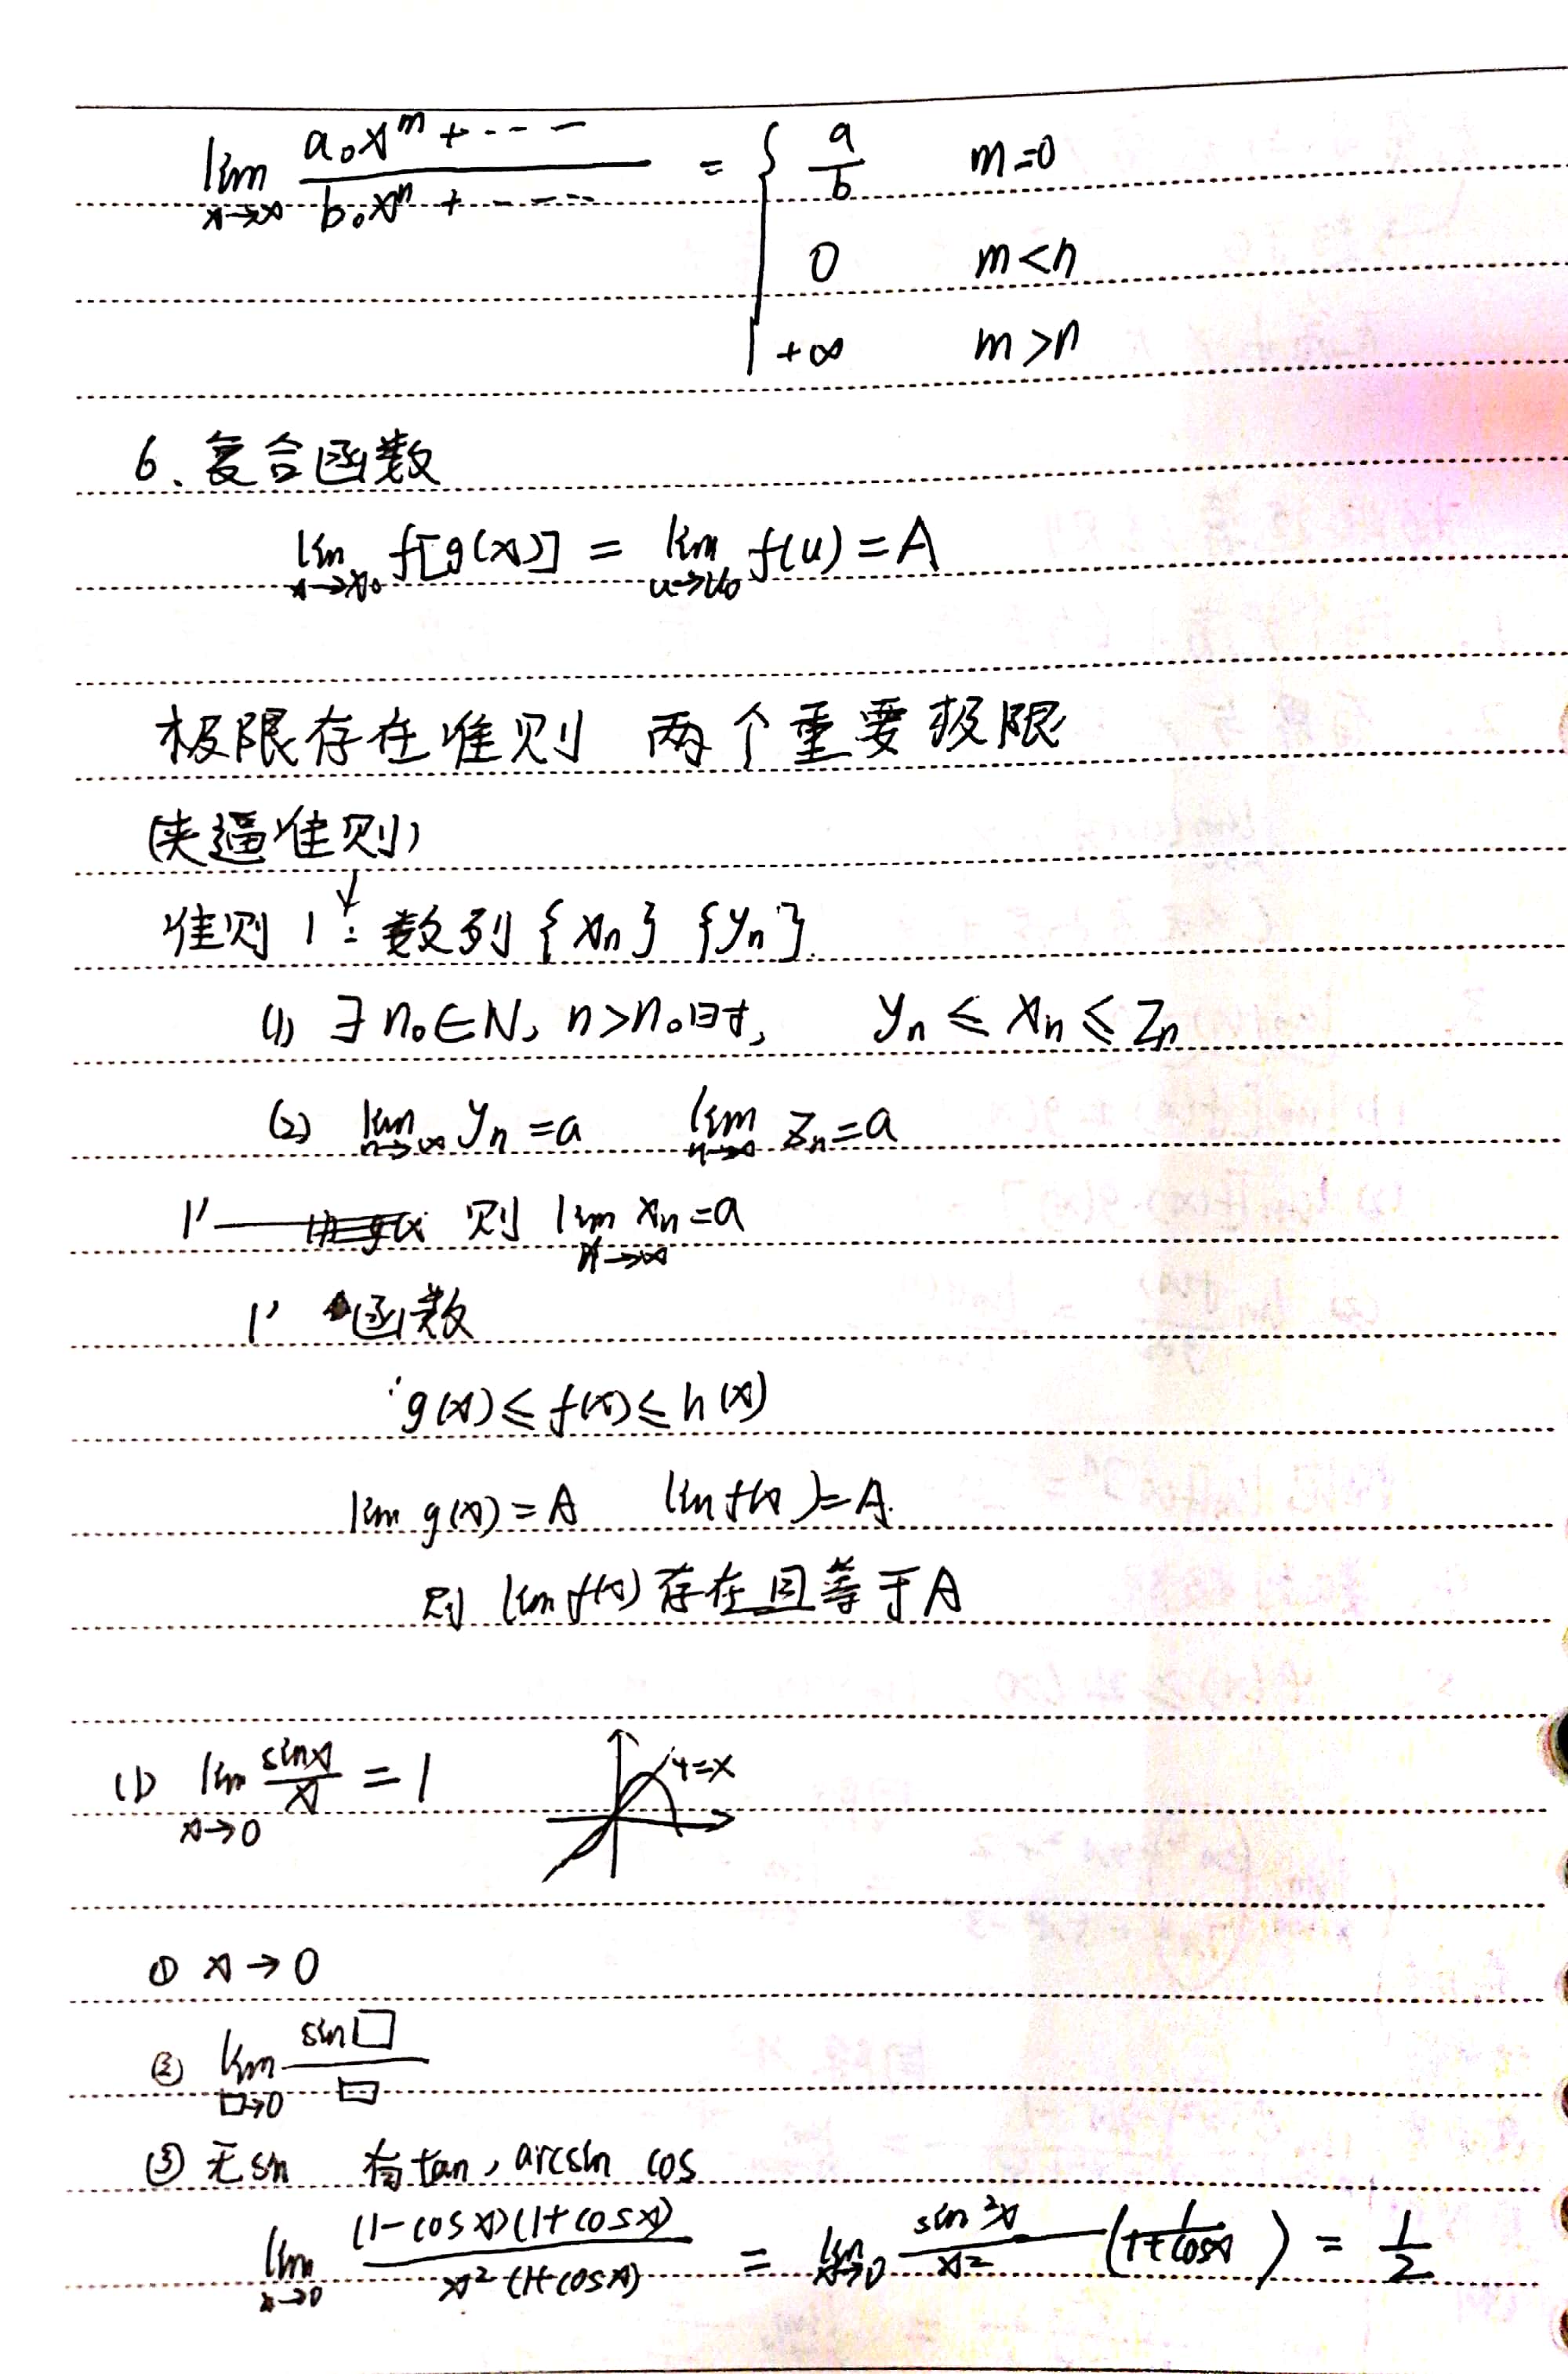 lim x→∞ (a₀x^m + ----)/(b₀x^n + ----) = { a/b m=0
0 m<n
+∞ m>n
6、复合函数
lim x→x₀ f[g(x)] = lim u→u₀ f(u) = A
极限存在准则 两个重要极限
(夹逼准则)
准则1: 数列{xn} {yn}
(1) ∃ n₀∈N, n>n₀时, yn ≤ xn ≤ Zn
(2) lim n→∞ yn = a lim n→∞ Zn = a
1' 则 lim x→∞ xn = a
1' 函数
g(x) ≤ f(x) ≤ h(x)
lim g(x) = A lim f(x) = A.
则 lim f(x) 存在且等于A
(1) lim x→0 sinx/x = 1 y=x
① x→0
② lim □→0 sin□/□
③ 无sin 有tan, arcsin cos
lim x→0 (1-cosx)(1+cosx)/x²(1+cosx) = lim x→0 sin²x/x² (1/1+cosx) = 1/2